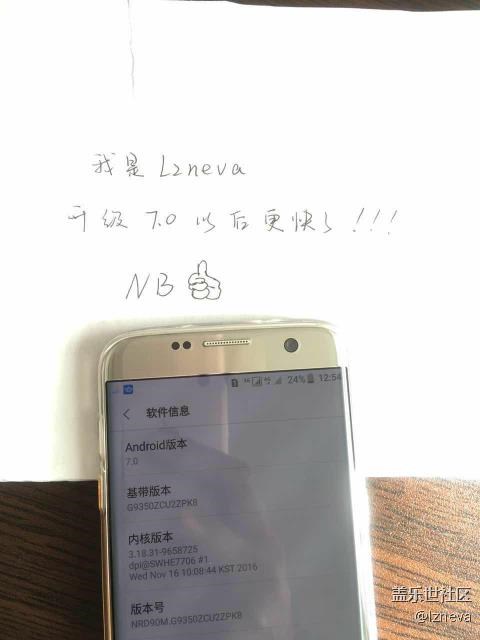 我是Lzneva
升级7.0以后更快了!!!
NB
24% 12:54
软件信息
Android版本
7.0
基带版本
G9350ZCU2ZPK8
内核版本
3.18.31-9658725
dpi@SWHE7706 #1
Wed Nov 16 10:08:44 KST 2016
版本号
NRD90M.G9350ZCU2ZPK8
盖乐世社区
@lzneva